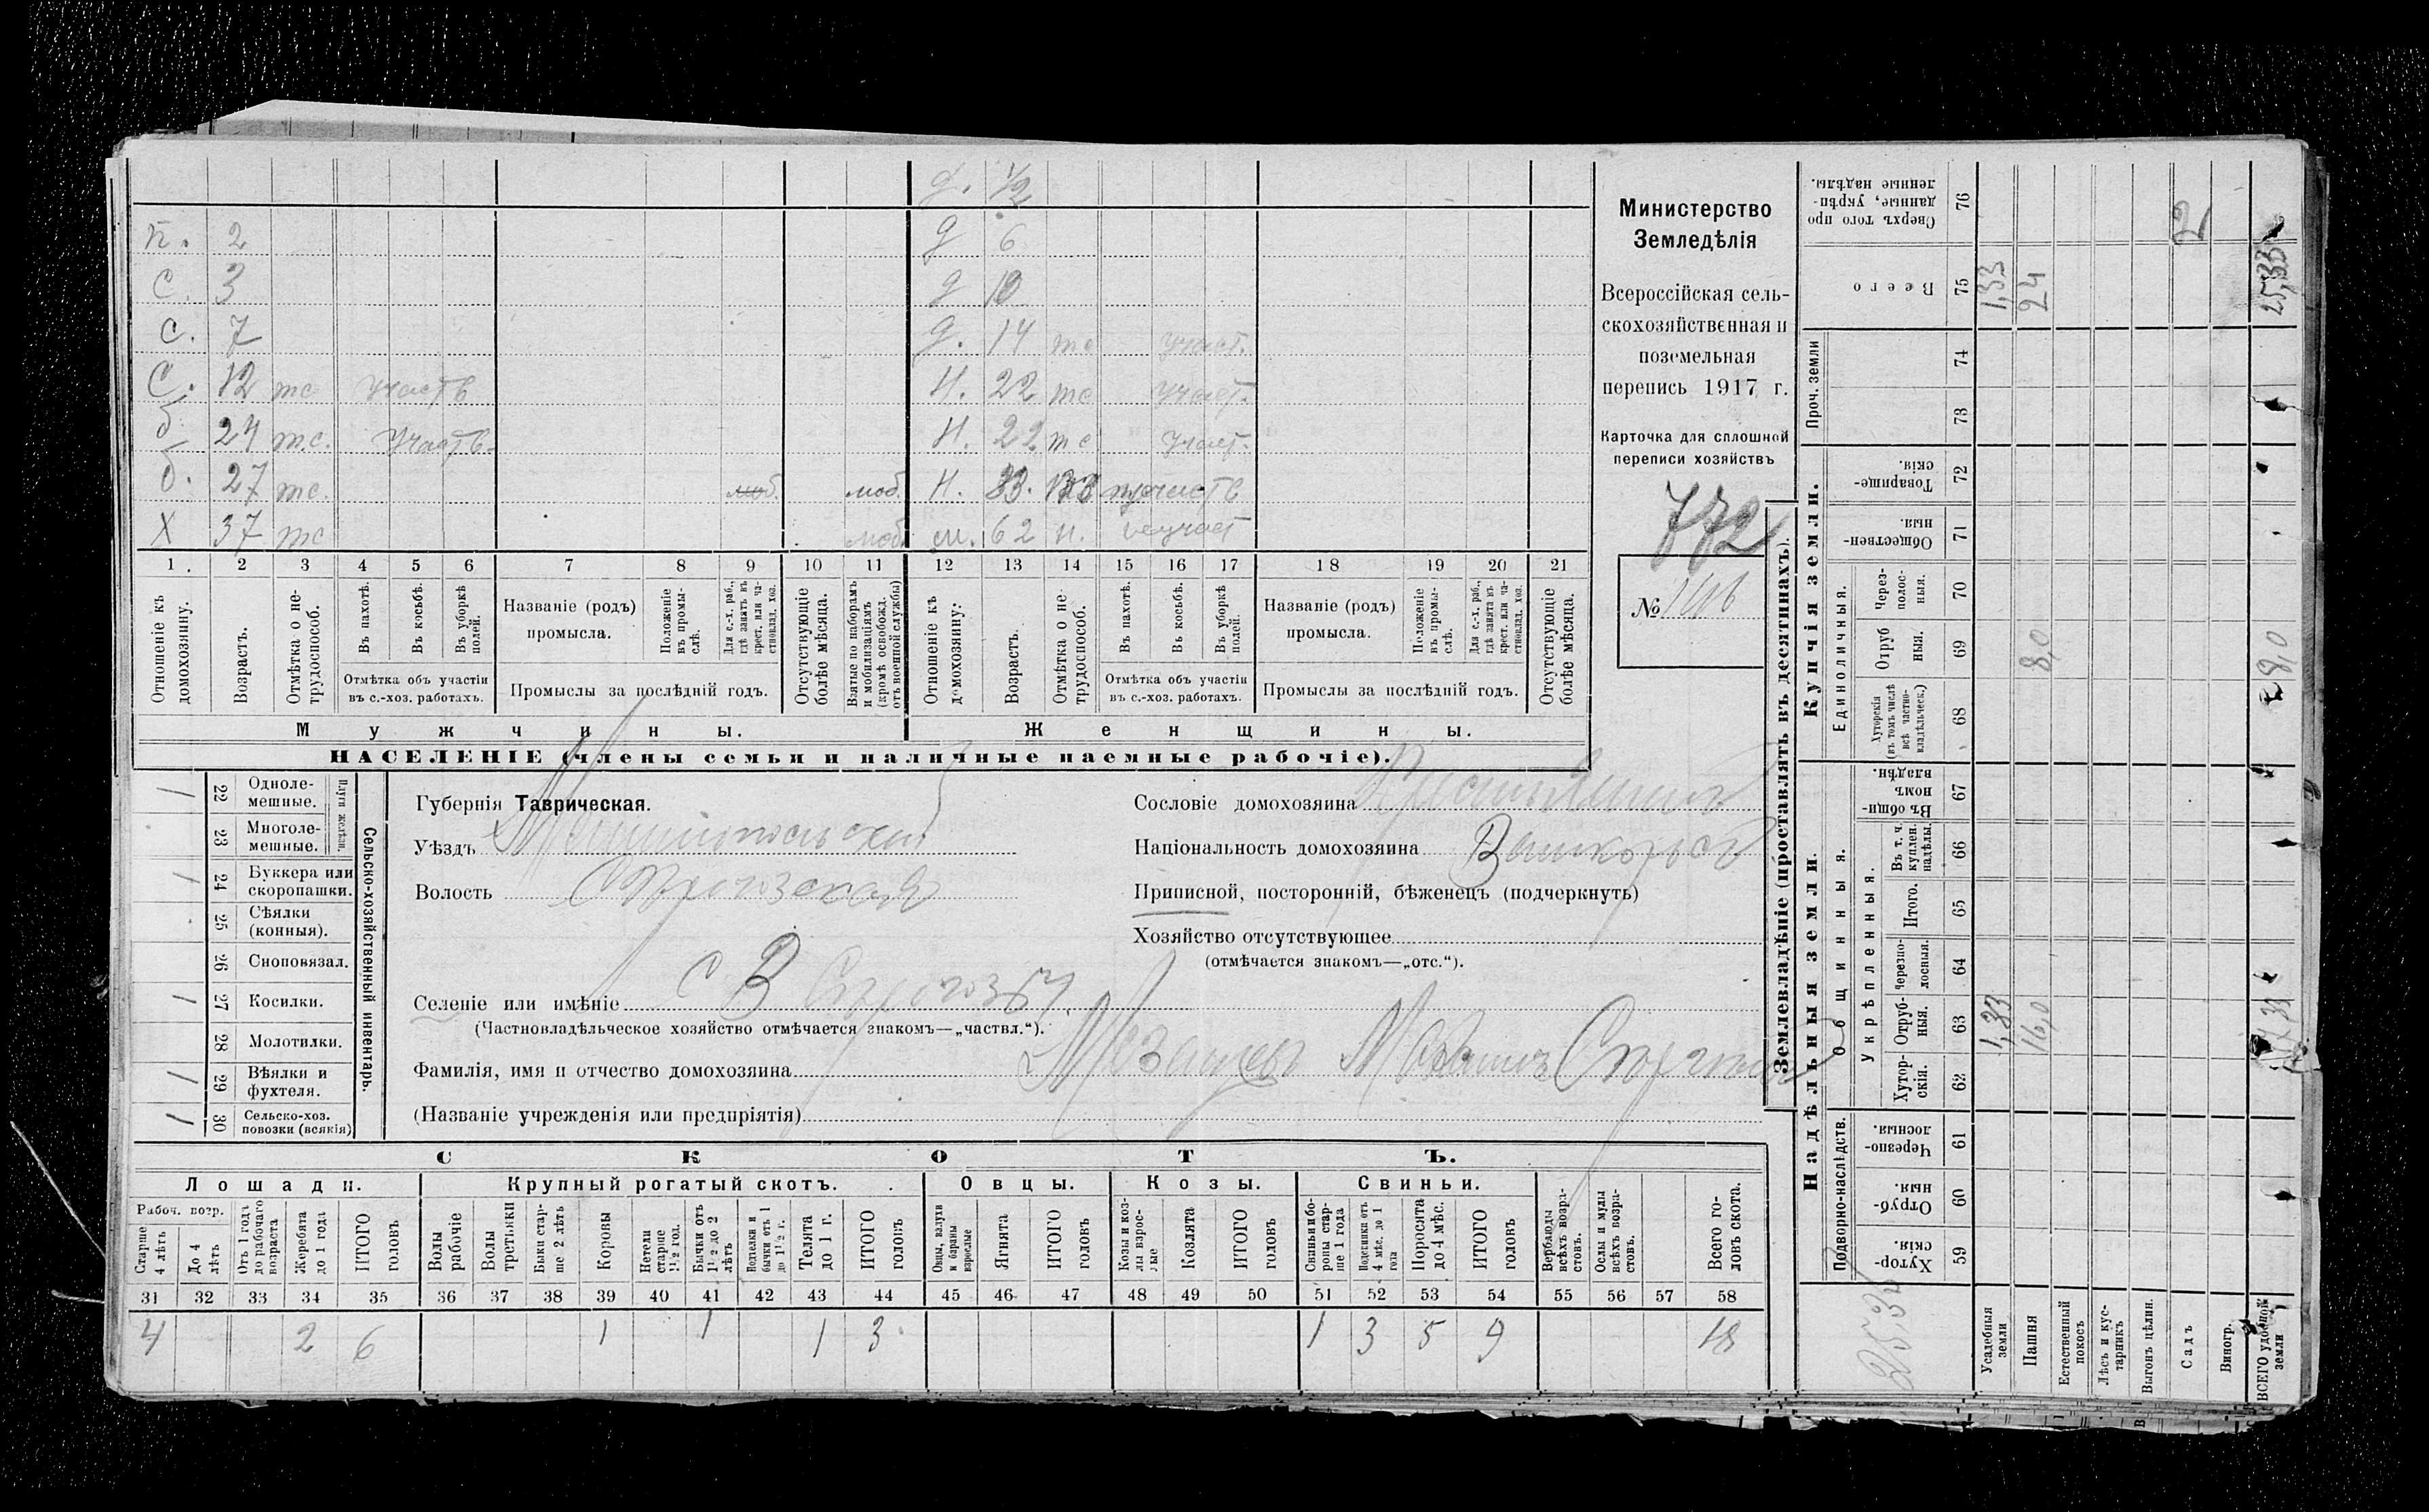 д. 1/2
п. 2 д 6
с. 3 д 10
с. 7 д. 14 тс участ.
с. 12 тс участв Н. 22 тс участ.
б. 24 т.с. участв. Н. 22 тс участ.
б. 27 тс. моб. моб. Н. 33. участв
Х 37 тс моб. м. 62 н. неучаст
1 2 3 4 5 6 7 8 9 10 11 12 13 14 15 16 17 18 19 20 21
Отношеніе къ домохозяину.
Возрастъ.
Отмѣтка о нетрудоспособ.
Въ пахотѣ.
Въ косьбѣ.
Въ уборкѣ полей.
Отмѣтка объ участіи въ с.-хоз. работахъ.
Названіе (родъ) промысла.
Положеніе въ промыслѣ.
Для с.-х. раб., гдѣ занятъ въ крест. или частновлад. хоз.
Промыслы за послѣдній годъ.
Отсутствующіе болѣе мѣсяца.
Взятые по наборамъ и мобилизаціямъ (кромѣ освобожд. отъ военной службы)
Отношеніе къ домохозяину:
Возрастъ.
Отмѣтка о нетрудоспособ.
Въ пахотѣ.
Въ косьбѣ.
Въ уборкѣ полей.
Отмѣтка объ участіи въ с.-хоз. работахъ.
Названіе (родъ) промысла.
Положеніе въ промыслѣ.
Для с.-х. раб., гдѣ занята въ крест. или частновлад. хоз.
Промыслы за послѣдній годъ.
Отсутствующіе болѣе мѣсяца.
Мужчины. Женщины.
НАСЕЛЕНІЕ (члены семьи и наличные наемные рабочіе).
Министерство
Земледѣлія
Всероссійская сель-
скохозяйственная и
поземельная
перепись 1917 г.
Карточка для сплошной
переписи хозяйствъ
772
№ 146
Сельско-хозяйственный инвентарь.
Плуги желѣзн.
1 22 Однолемешные.
23 Многолемешные.
1 24 Буккера или скоропашки.
25 Сѣялки (конныя).
26 Сноповязал.
1 27 Косилки.
28 Молотилки.
1 29 Вѣялки и фухтеля.
1 30 Сельско-хоз. повозки (всякія)
Губернія Таврическая.
Уѣздъ Мелитопольскій
Волость
Селеніе или имѣніе с В
(Частновладѣльческое хозяйство отмѣчается знакомъ—„частвл.“).
Фамилія, имя и отчество домохозяина
(Названіе учрежденія или предпріятія)
Сословіе домохозяина
Національность домохозяина
Приписной, посторонній, бѣженецъ (подчеркнуть)
Хозяйство отсутствующее
(отмѣчается знакомъ—„отс.“).
СКОТЪ.
Лошади. Крупный рогатый скотъ. Овцы. Козы. Свиньи.
Рабоч. возр.
Старше 4 лѣтъ
До 4 лѣтъ
Отъ 1 года до рабочаго возраста
Жеребята до 1 года
ИТОГО головъ
Волы рабочіе
Волы третьяки
Быки старше 2 лѣтъ
Коровы
Нетели старше 1½ год.
Бычки отъ 1½ до 2 лѣтъ
Телки и бычки отъ 1 до 1½ г.
Телята до 1 г.
ИТОГО головъ
Овцы, валухи и бараны взрослые
Ягнята
ИТОГО головъ
Козы и козлы взрослые
Козлята
ИТОГО головъ
Свиньи и бороны старше 1 года
Подсвинки отъ 4 мѣс. до 1 года
Поросята до 4 мѣс.
ИТОГО головъ
Верблюды всѣхъ возрастовъ.
Ослы и мулы всѣхъ возрастовъ.
Всего головъ скота.
31 32 33 34 35 36 37 38 39 40 41 42 43 44 45 46 47 48 49 50 51 52 53 54 55 56 57 58
4 2 6 1 1 1 3 1 3 5 9 18
Землевладѣніе (проставлять въ десятинахъ).
Надѣльныя земли. Купчія земли.
Подворно-наслѣдств. Общинныя. Укрѣпленныя. Единоличныя. Проч. земли
59 Хуторскія.
60 Отрубныя.
61 Черезполосныя.
62 Хуторскія.
63 Отрубныя.
64 Черезполосныя.
65 Итого.
66 Въ т. ч. куплен. надѣлы.
67 Въ общинномъ владѣн.
68 Хуторскія (въ томъ числѣ всѣ частновладѣльческ.)
69 Отрубныя.
70 Черезполосныя.
71 Общественныя.
72 Товарищескія.
73
74
75 Всего
76 Сверхъ того проданные, укрѣпленные надѣлы.
Усадебныя земли 1,33 1,33
Пашня 16,0 8,0 24
Естественный покосъ
Лѣсъ и кустарникъ
Выгонъ цѣлин.
Садъ 2
Виногр.
ВСЕГО удобной земли 8,0 25,33